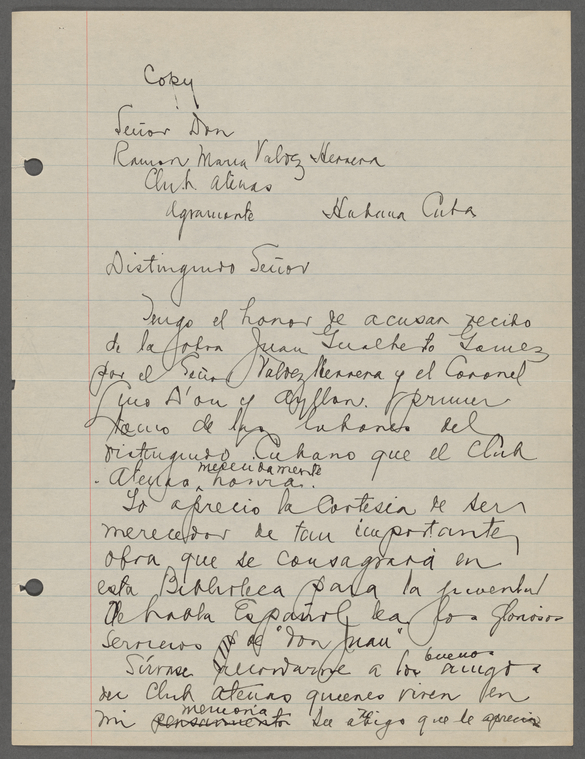 Copy
Señor Don
Ramon Maria Valdez Herrera
Club Atenas
Agramonte Habana Cuba
Distinguido Señor
Tengo el honor de acusar recibo
de la obra Juan Gualberto Gomez
por el Señor Valdez Herrera y el Coronel
Lino D'ou y Ayllon. primer
tomo de las labores del
distinguido Cubano que el Club
Atenas merecidamente honra.
Yo aprecio la Cortesia de ser
merecedor de tan importante
obra que se consagrará en
esta Biblioteca para la juventud
de habla Español, lea los gloriosos
servicios de "Don Juan"
Sirvase recordarme a los buenos amigos
del Club Atenas quienes viven en
mi pensamiento memoria Su amigo que le aprecia